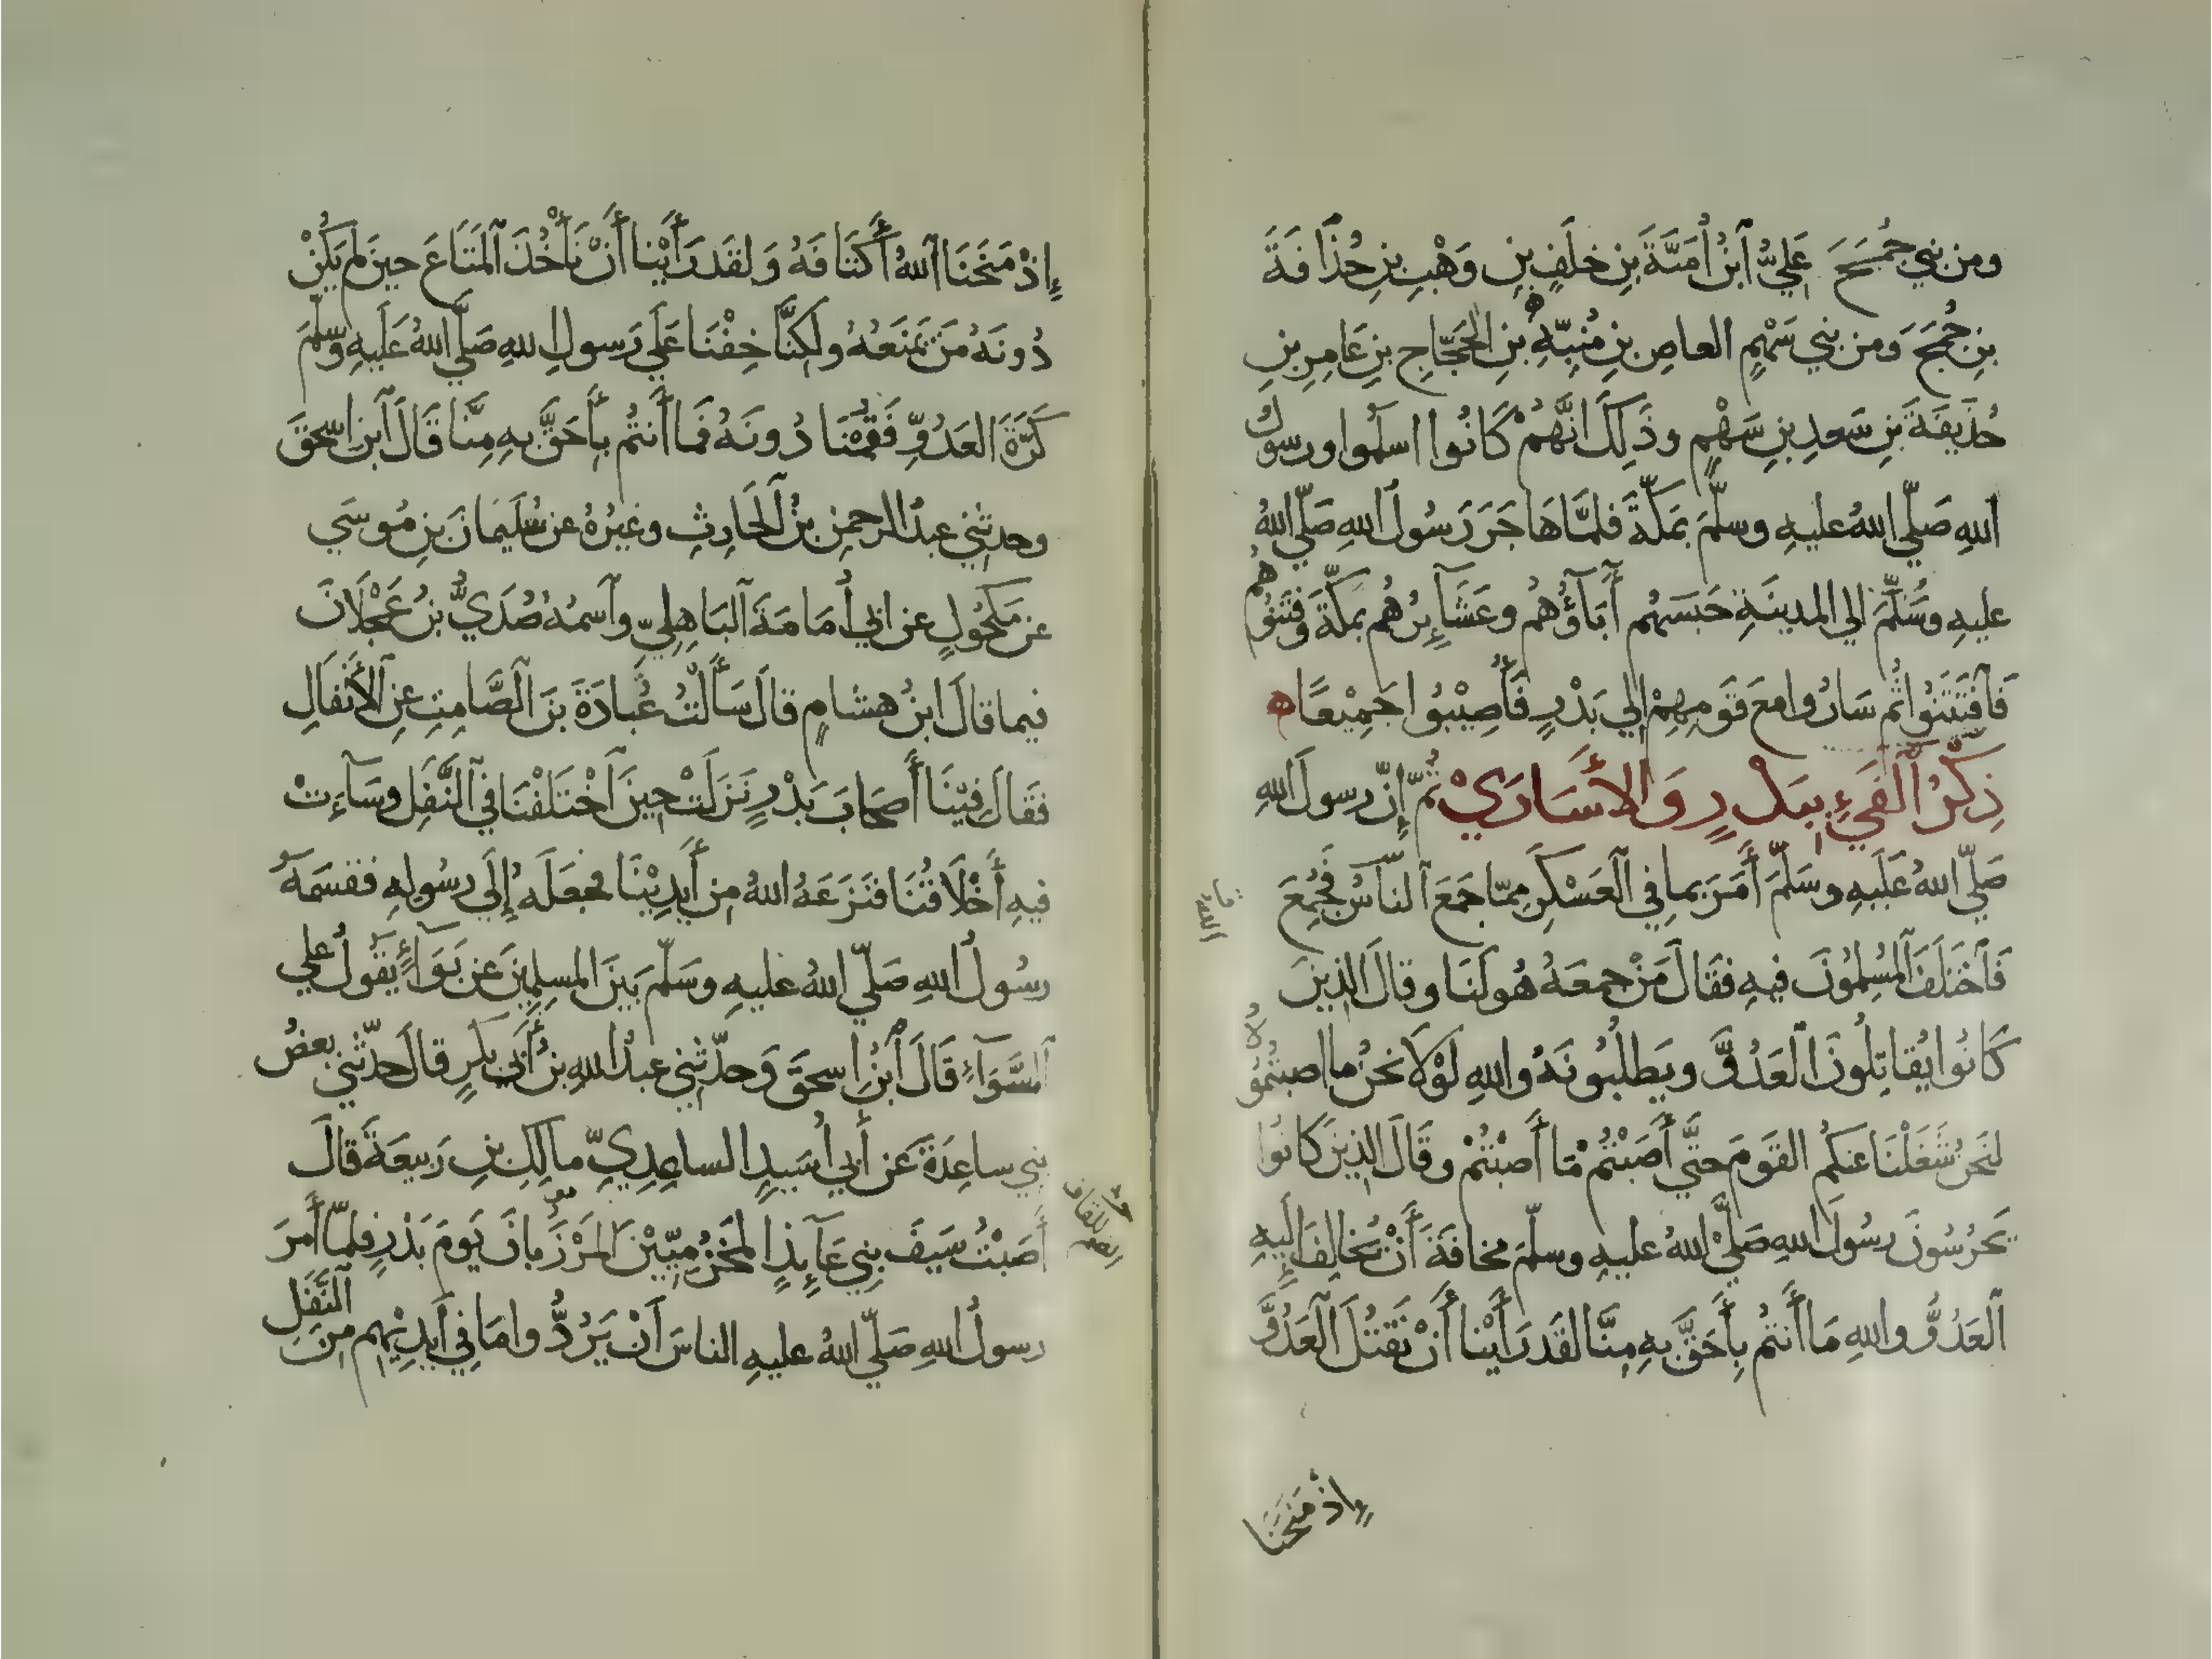 ومن بني جُمَحَ عَلِيُّ ٱبنُ أُمَيَّةَ بنِ خلَفِ بنِ وَهْبِ بنِ حُذَافَةَ
بنِ جُمَحَ وَمن بني سَهْمٍ العاصِ بنِ مُنبِّهِ بنِ الحَجَّاجِ بنِ عَامِرِ بنِ
حُذَيفَةَ بنِ سَعدِ بنِ سَهْمٍ وذَلِكَ انَّهُمْ كَانُوا اسلَموا ورسولُ
اللهِ صَلّي اللهُ عليهِ وسلَّمَ بمَكّةَ فلمَّا هَاجَرَ رَسُولُ اللهِ صَلّي اللهُ
عليهِ وسَلَّمَ إلي المدينَةِ حَبَسَهُم أَبَآؤُهُم وعَشَآئِرُهُم بمَكّةَ وَفَتَنُوهُم
فَٱفْتَتَنُوا ثُم سَارُوا معَ قَومِهِمْ إلي بَدْرٍ فَأُصِيْبُوا جَمِيْعًا ه
ذِكْرُ ٱلفَيءِ ببَدْرٍ وَالأَسَارَيْ ثُمّ إِنّ رسولَ اللهِ
صَلّي اللهُ عَلَيهِ وسَلَّمَ أَمَرَ بما في ٱلعَسْكَرِ مِمّا جَمَعَ ٱلنّاسُ فَجُمِعَ
فَٱختَلَفَ ٱلمُسلِمُونَ فيهِ فقَالَ مَنْ جمعَهُ هُو لَنَا وقالَ الذِينَ
كَانُوا يُقاتِلُونَ ٱلعَدُوَّ ويَطلُبُونَهُ واللهِ لَوْلَا نحنُ ما اصبتُمُوهُ
لنَحنُ شَغَلْنَا عَنكُم القَومَ حتَّي أَصَبْتُم مَا أَصَبْتُمْ وقَالَ الذِينَ كانُوا
يَحْرُسُونَ رسُولَ اللهِ صَلَّي اللهُ عليهِ وسلّمَ مخافَةَ أَنْ يُخَالِفَ إليهِ
ٱلعَدُوُّ واللهِ مَا أَنتُم بِأَحَقَّ بهِ مِنَّا لقَد رَأَيْنا أَنْ نَقتُلَ ٱلعَدُوَّ
إِذْ مَنَحَنَا
إِذْ مَنَحَنَا ٱللهُ أَكتَافَهُ وَلقَد رَأَيْنا أَنْ نَأْخُذَ ٱلمَتَاعَ حينَ لم يَكُنْ
دُونَهُ مَن يَمنَعُهُ ولَكِنَّا خِفْنَا عَلَي رَسولِ اللهِ صَلَّي اللهُ عَلَيهِ وسلّمَ
كَرَّةَ العَدُوِّ فَقُمْنَا دُونَهُ فمَا أَنتُم بأَحَقَّ بهِ مِنَّا قَالَ ٱبن اسحقَ
وحدثني عبدُ الرحمنِ بنُ ٱلحَارِثِ وغيرُهُ عن سُلَيمَانَ بنِ مُوسَي
عن مَكحُولٍ عن ابي أُمَامَةَ ٱلبَاهِلِيّ وٱسمُهُ صُدَيُّ بنُ عَجْلَانَ
فيما قالَ ابنُ هشامٍ قالَ سَأَلْتُ عُبادَةَ بنَ الصَّامِتِ عنِ الأَنفَالِ
فقَالَ فِيْنَا أَصحابَ بَدْرٍ نَزَلَتْ حِينَ ٱخْتَلَفْنَا في ٱلنَّفَلِ وسَآءَتْ
فيهِ أَخْلَاقُنَا فنَزَعَهُ اللهُ مِن أَيدِيْنَا فجعَلَهُ إِلَي رسُولِهِ فقسَمَهُ
رسُولُ اللهِ صَلّي اللهُ عليهِ وسَلّمَ بَينَ المسلِمِينَ عن بَوَآءٍ يقولُ علي
السَّوَآءِ قَالَ ٱبنُ اسحقَ وَحدّثني عبدُ اللهِ بنُ أَبي بكرٍ قالَ حدّثني بعضُ
بَني ساعِدَةَ عَن أَبي أُسَيدٍ الساعِدِيِّ مالِكِ بنِ رَبيعَةَ قالَ
أَصَبْتُ سَيفَ بَنِي عَآئِذٍ المَخزُمِيّيْنَ المَرْزُبانَ يَومَ بَدْرٍ فلمّا أَمرَ
رسولُ اللهِ صَلّي اللهُ عليهِ الناسَ أَنْ يَرُدُّوا مَا في أَيدِيْهِم مِنَ ٱلنَّفَلِ